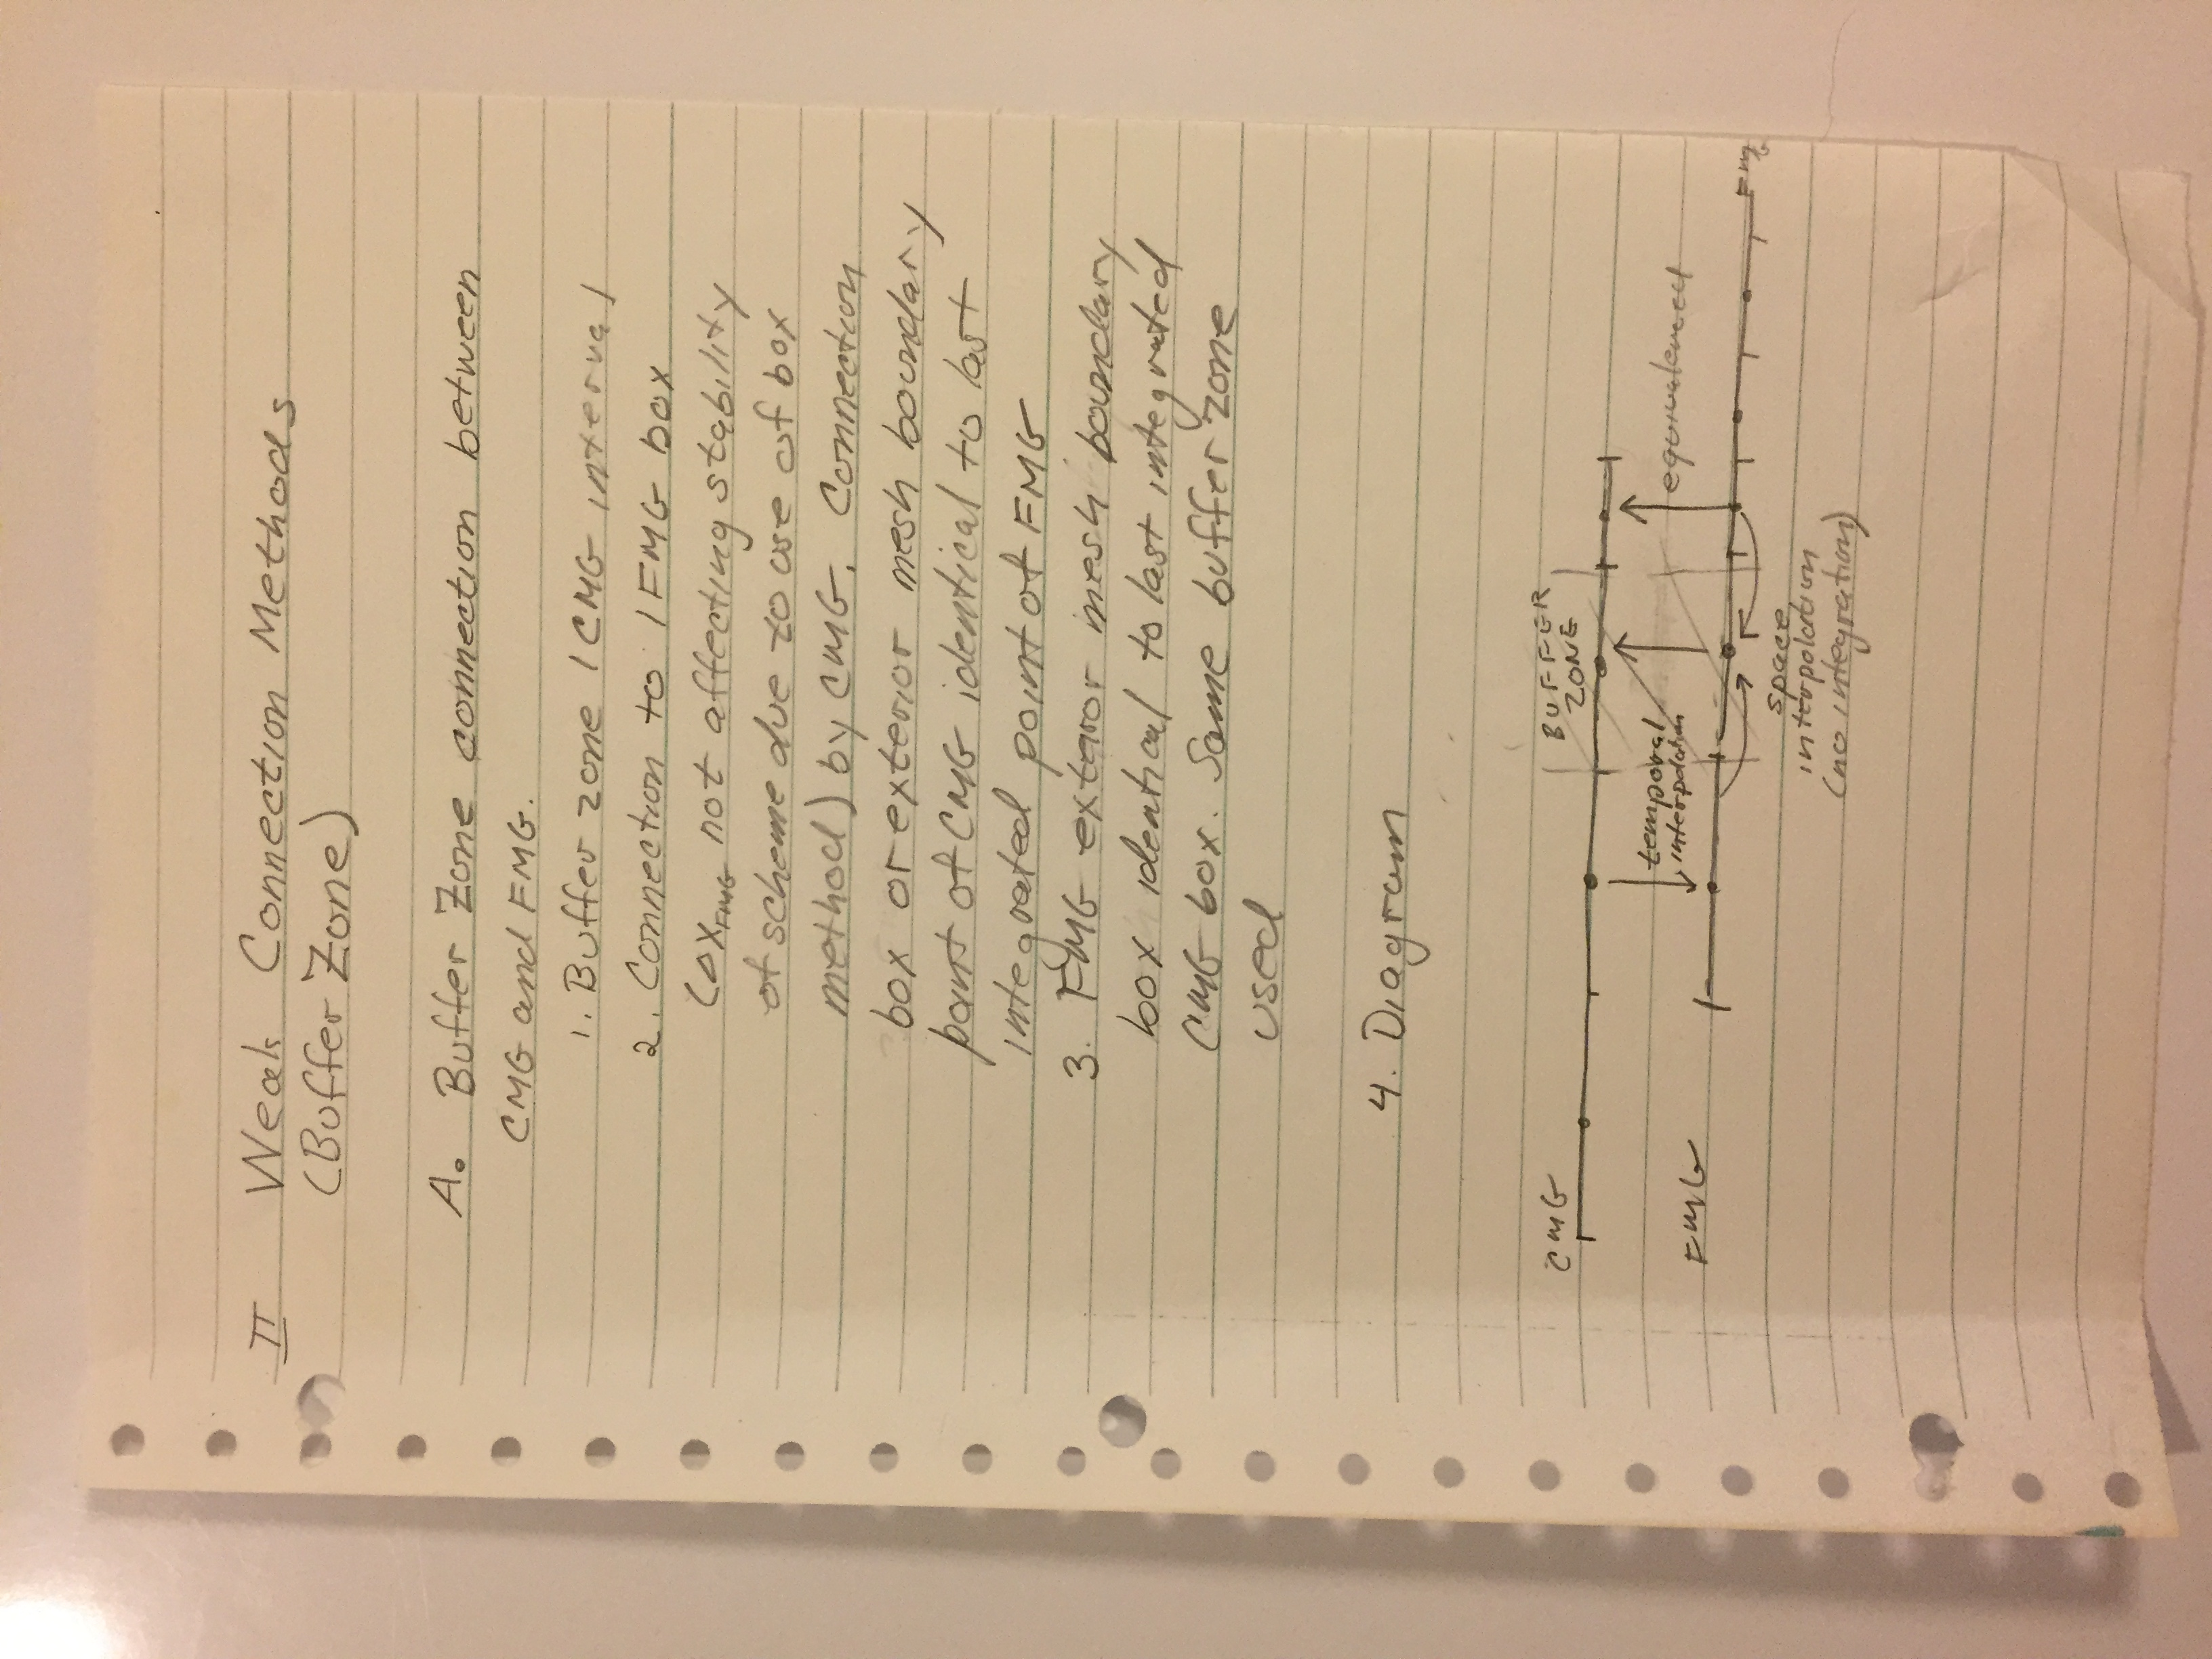 II Weak Connection Methods
(Buffer Zone)
A. Buffer Zone connection between
CMG and FMG.
1. Buffer zone 1 CMG interval
2. Connection to 1 FMG box
not affecting stability
of scheme due to use of box
method) by CMG. Connection
box or exterior mesh boundary
point of CMG identical to last
integrated point of FMG
3. FMG exterior mesh boundary
box identical to last integrated
CMG box. Same buffer zone
used
4. Diagram
CMG
BUFFER
ZONE
temporal
interpolation
equivalenced
FMG
FMG
space
interpolation
(no integration)